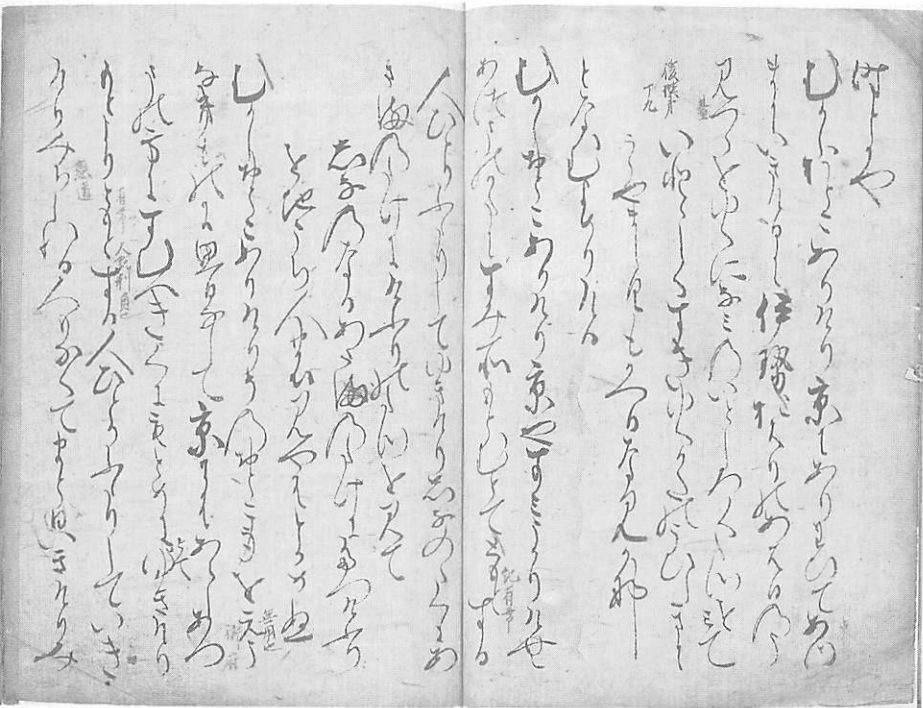 時とかや
むかしおとこありけり京にありわひてあつ
まにいきけるに伊勢おはりのあはひのう
みつらをゆくになみのいとしろくたつをみて
後撰 十九
いとゝしくすきゆくかたのこひしきに
うらやましくもかへるなみかな
となむよめりける
むかしおとこありけり京やすみうかりけむ
あつまのかたにすみ所もとむとてともとする
人ひとりふたりしてゆきけりしなのゝくにあ
さまのたけにけふりのたつを見て
しなのなるあさまのたけにたつけふり
をちこち人の見やはとかめぬ
むかしおとこありけりそのおとこ身をえう
なき物に思なして京にはあらしあつ
まの方にすむへきくにもとめにゆきけり
もとよりともとする人ひとりふたりしていき
けりみちしれる人もなくてまとひいきけりみ